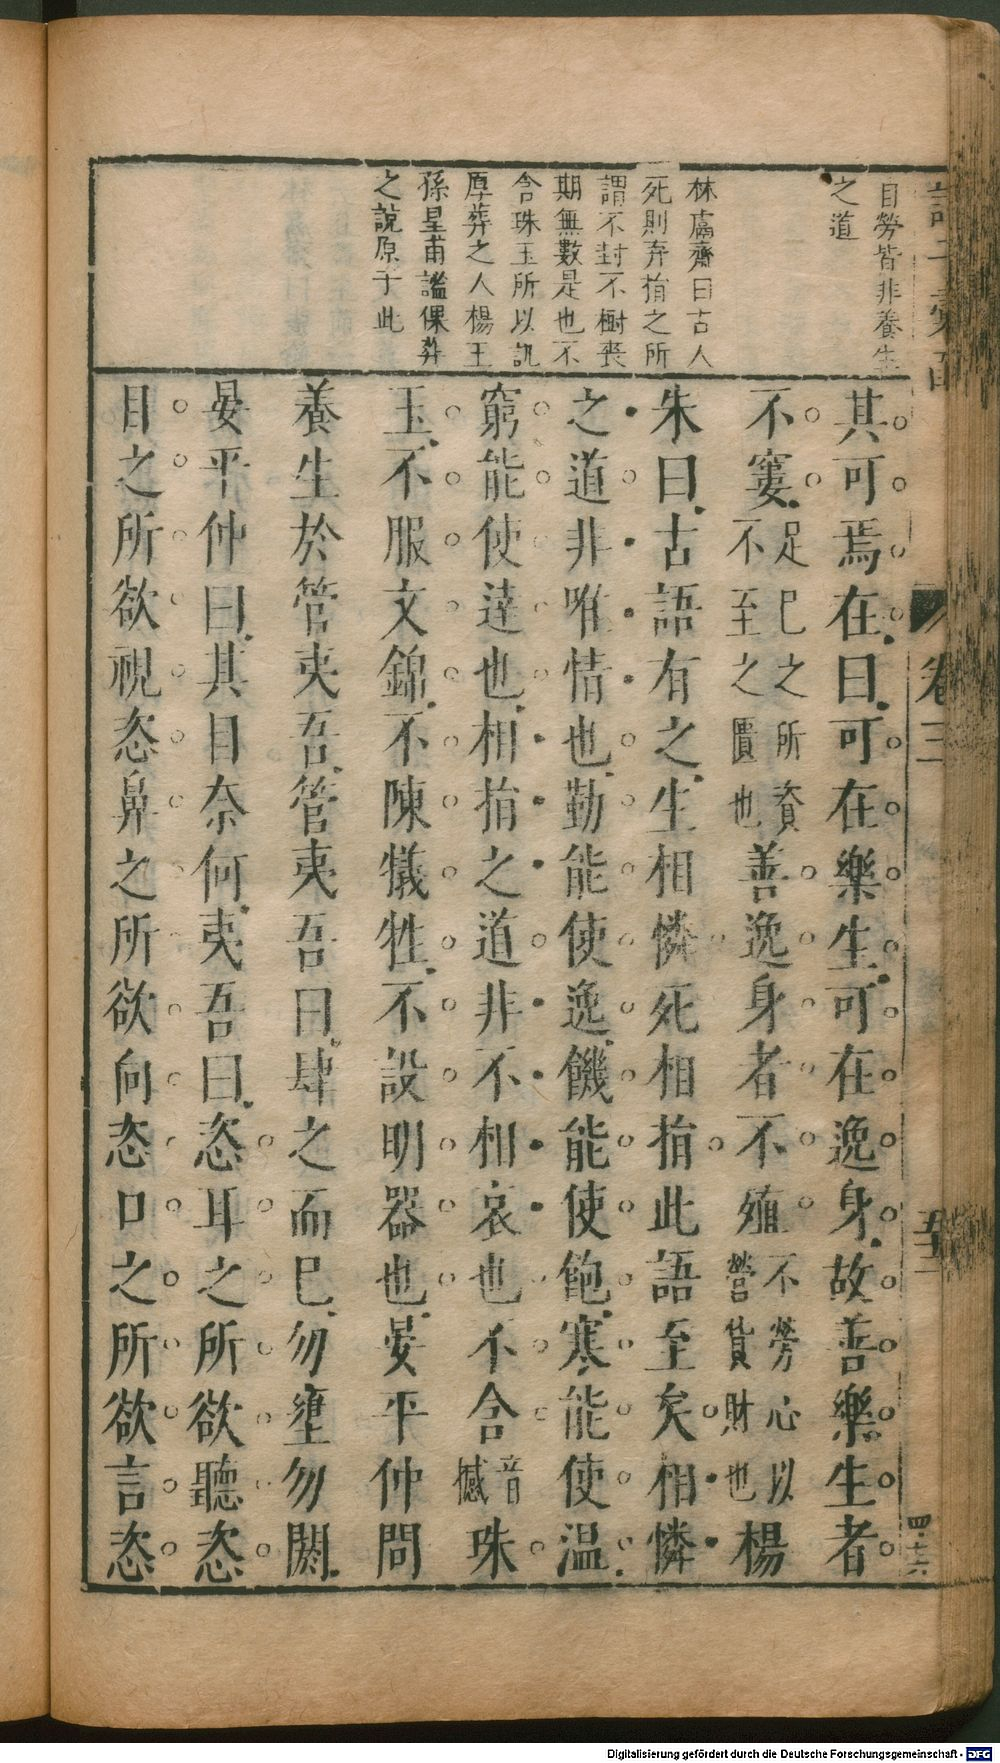 目勞皆非養生
之道
林鬳齋曰古人
死則弃捐之所
謂不封不樹喪
期無數是也不
含珠玉所以訊
厚葬之人楊王
孫皇甫謐倮葬
之說原于此
其可焉在曰可在樂生可在逸身故善樂生者
不窶足巳之所資不至之匱也善逸身者不殖不勞心以營貨財也楊
朱曰古語有之生相憐死相捐此語至矣相憐
之道非唯情也勤能使逸饑能使飽寒能使温
窮能使達也相捐之道非不相哀也不含音憾珠
玉不服文錦不陳犧牲不設明器也晏平仲問
養生於管夷吾管夷吾曰肆之而巳勿壅勿閼
晏平仲曰其目奈何夷吾曰恣耳之所欲聽恣
目之所欲視恣鼻之所欲向恣口之所欲言恣
卷三
四十六
Digitalisierung gefördert durch die Deutsche Forschungsgemeinschaft - DFG